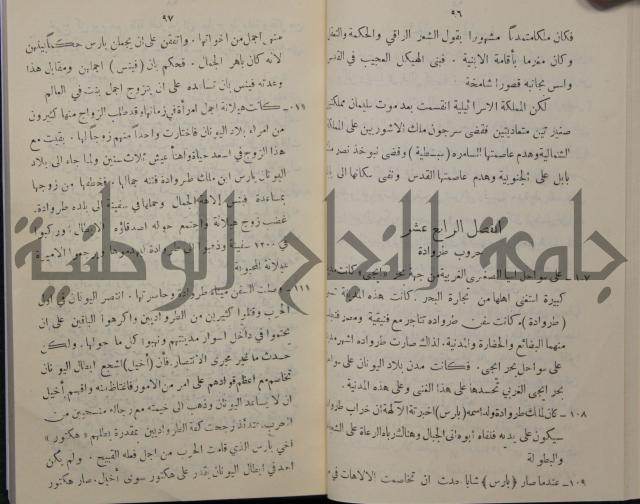 ٩٦
فكان ملكا متمدنا مشهورا بقول الشعر الراقي والحكمة والتعقل
وكان مغرما بأقامة الابنية . فبنى الهيكل العجيب في القدس
واسس بجانبه قصورا شامخة .
لكن المملكة الاسرائيلية انقسمت بعد موت سليمان مملكتين
صغيرتين متعاديتين فقضى سرجون ملك الاشوريين على المملكة
الشمالية وهدم عاصمتها السامره (سبسطية) وقضى نبوخذ نصر ملك
بابل على الجنوبية وهدم عاصمتها القدس ونفى سكانها الى
الفصل الرابع عشر
حروب طروادة
١٠٧ - على سواحل اسيا الصغرى الغربية من جهة بحر ايجي كانت
كبيرة استغنى اهلها من تجارة البحر . كانت هذه المدينة
(طروادة) . كانت سفن طرواده تتاجر مع فنيقية ومصر
منهما البضائع والحضارة والمدنية . لذلك صارت طرواده اشهر
على سواحل بحر ايجي . فكانت مدن بلاد اليونان على سواحل
بحر ايجي الغربي تحسدها على هذا الغنى وعلى هذه المدنية .
١٠٨ - كان لملك طروادة ولد اسمه (بارس) اخبرته الآلهة ان خراب طروادة
سيكون على يديه فلقاه أبوه الى الجبال وهناك رباه الرعاة على
والبطولة
١٠٩ - عندما صار (بارس) شابا حدث ان تخاصمت الالاهات في
٩٧
منهن اجمل من اخواتها . واتفقن على ان يجعلن بارس حكما بينهن
لانه كان باهر الجمال . فحكم بان (فينس) اجملهن ومقابل هذا
وعدته فينس بان تساعده على ان يتزوج اجمل بنت في العالم
كانت هيلانة اجمل امرأة في زمانها وقد طلب الزواج منها كثيرون
من امراء بلاد اليونان فاختارت واحدا منهم زوجا لها . بقيت مع
هذا الزوج في اسعد حياة واهنأ عيش ثلاث سنين ولما جاء الى بلاد
اليونان بارس ابن ملك طروادة فتنه جمالها . فخطفها من زوجها
بمساعدة فينس الاهة الجمال وحملها في سفينة الى بلده طروادة .
غضب زوج هيلانة واجتمع حوله اصدقاؤه الابطال وركبوا
في ١٢٠٠ سفينة وذهبوا الى طروادة ليهدموها ويرجعوا الاميرة
هيلانة المحبوبة
١١١ - وصلت السفن ميناء طروادة وحاصرتها . انتصر اليونان في اول
الحرب وقتلوا كثيرين من الطرواديين واكرهوا الباقين على ان
يحتموا في داخل اسوار مدينتهم ونهبوا كل ما حولها . ولكن
حدث ما غير مجرى الانتصار فان (أخيل) اشجع ابطال اليونان
تخاصم مع اعظم قوادهم على امر من الامور فاغتاظ منه واقسم أخيل
ان لا يساعد اليونان وذهب الى خيمته مع رجاله منسحبين من
الحرب عندئذ رجحت كفة الطرواديين بمقدرة بطلهم « هكتور »
اخي بارس الذي قامت الحرب من اجل فعله القبيح . ولم يكن
احد في ابطال اليونان يقدر على هكتور سوى أخيل . صار هكتور
جامعة النجاح الوطنية